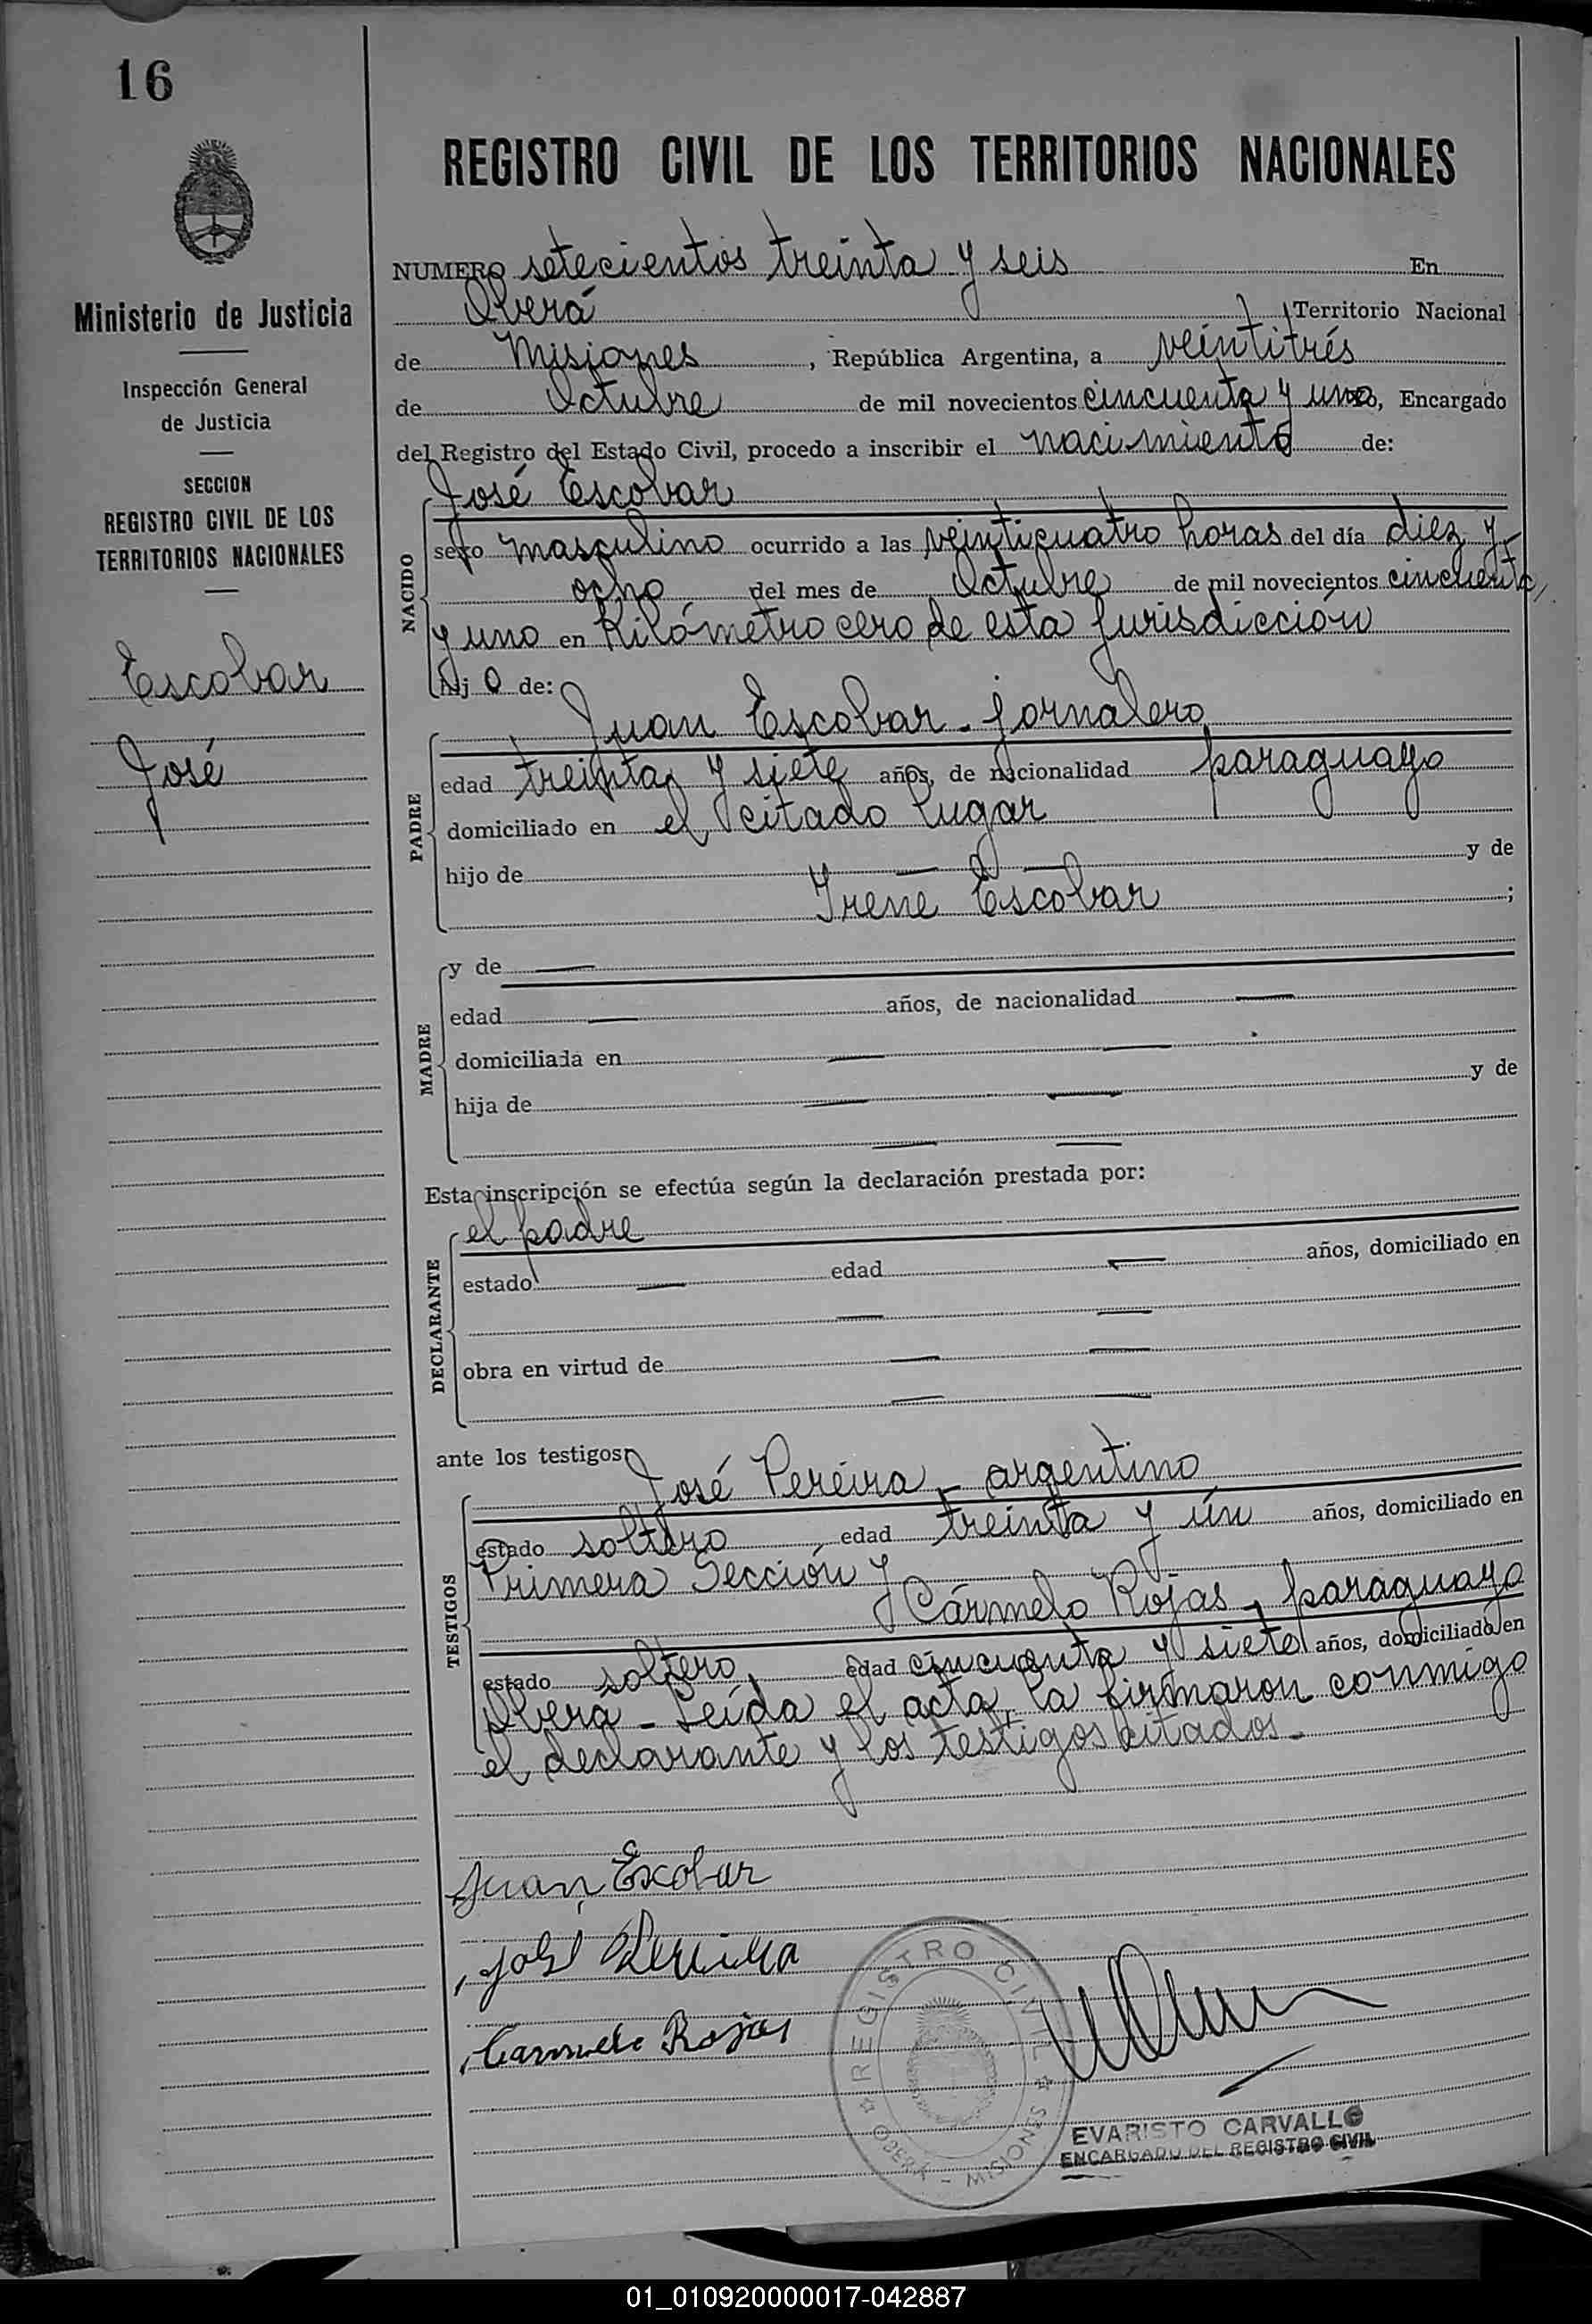 16
Ministerio de Justicia
Inspección General
de Justicia
SECCION
REGISTRO CIVIL DE LOS
TERRITORIOS NACIONALES
Escobar
José
REGISTRO CIVIL DE LOS TERRITORIOS NACIONALES
NUMERO setecientos treinta y seis En
Oberá Territorio Nacional
de Misiones, República Argentina, a veintitrés
de Octubre de mil novecientos cincuenta y uno, Encargado
del Registro del Estado Civil, procedo a inscribir el nacimiento de:
NACIDO
José Escobar
sexo masculino ocurrido a las veinticuatro horas del día diez y
ocho del mes de Octubre de mil novecientos cincuenta
y uno en Kilómetro cero de esta jurisdicción
hij o de:
PADRE
Juan Escobar - jornalero
edad treinta y siete años, de nacionalidad paraguayo
domiciliado en el citado lugar
hijo de — — y de
Irene Escobar ;
MADRE
y de —
edad — años, de nacionalidad —
domiciliada en — —
hija de — — y de
— —
Esta inscripción se efectúa según la declaración prestada por:
DECLARANTE
el padre
estado — edad — años, domiciliado en
— —
obra en virtud de — —
— —
ante los testigos José Pereira - argentino
TESTIGOS
estado soltero edad treinta y ún años, domiciliado en
Primera Sección y
Cármelo Rojas - paraguayo
estado soltero, edad cincuenta y siete años, domiciliado en
Oberá - Leída el acta, la firmaron conmigo
el declarante y los testigos citados.-
Juan Escobar
José Pereira
Carmelo Rojas
REGISTRO CIVIL
OBERA - MISIONES
EVARISTO CARVALLO
ENCARGADO DEL REGISTRO CIVIL
01_010920000017-042887